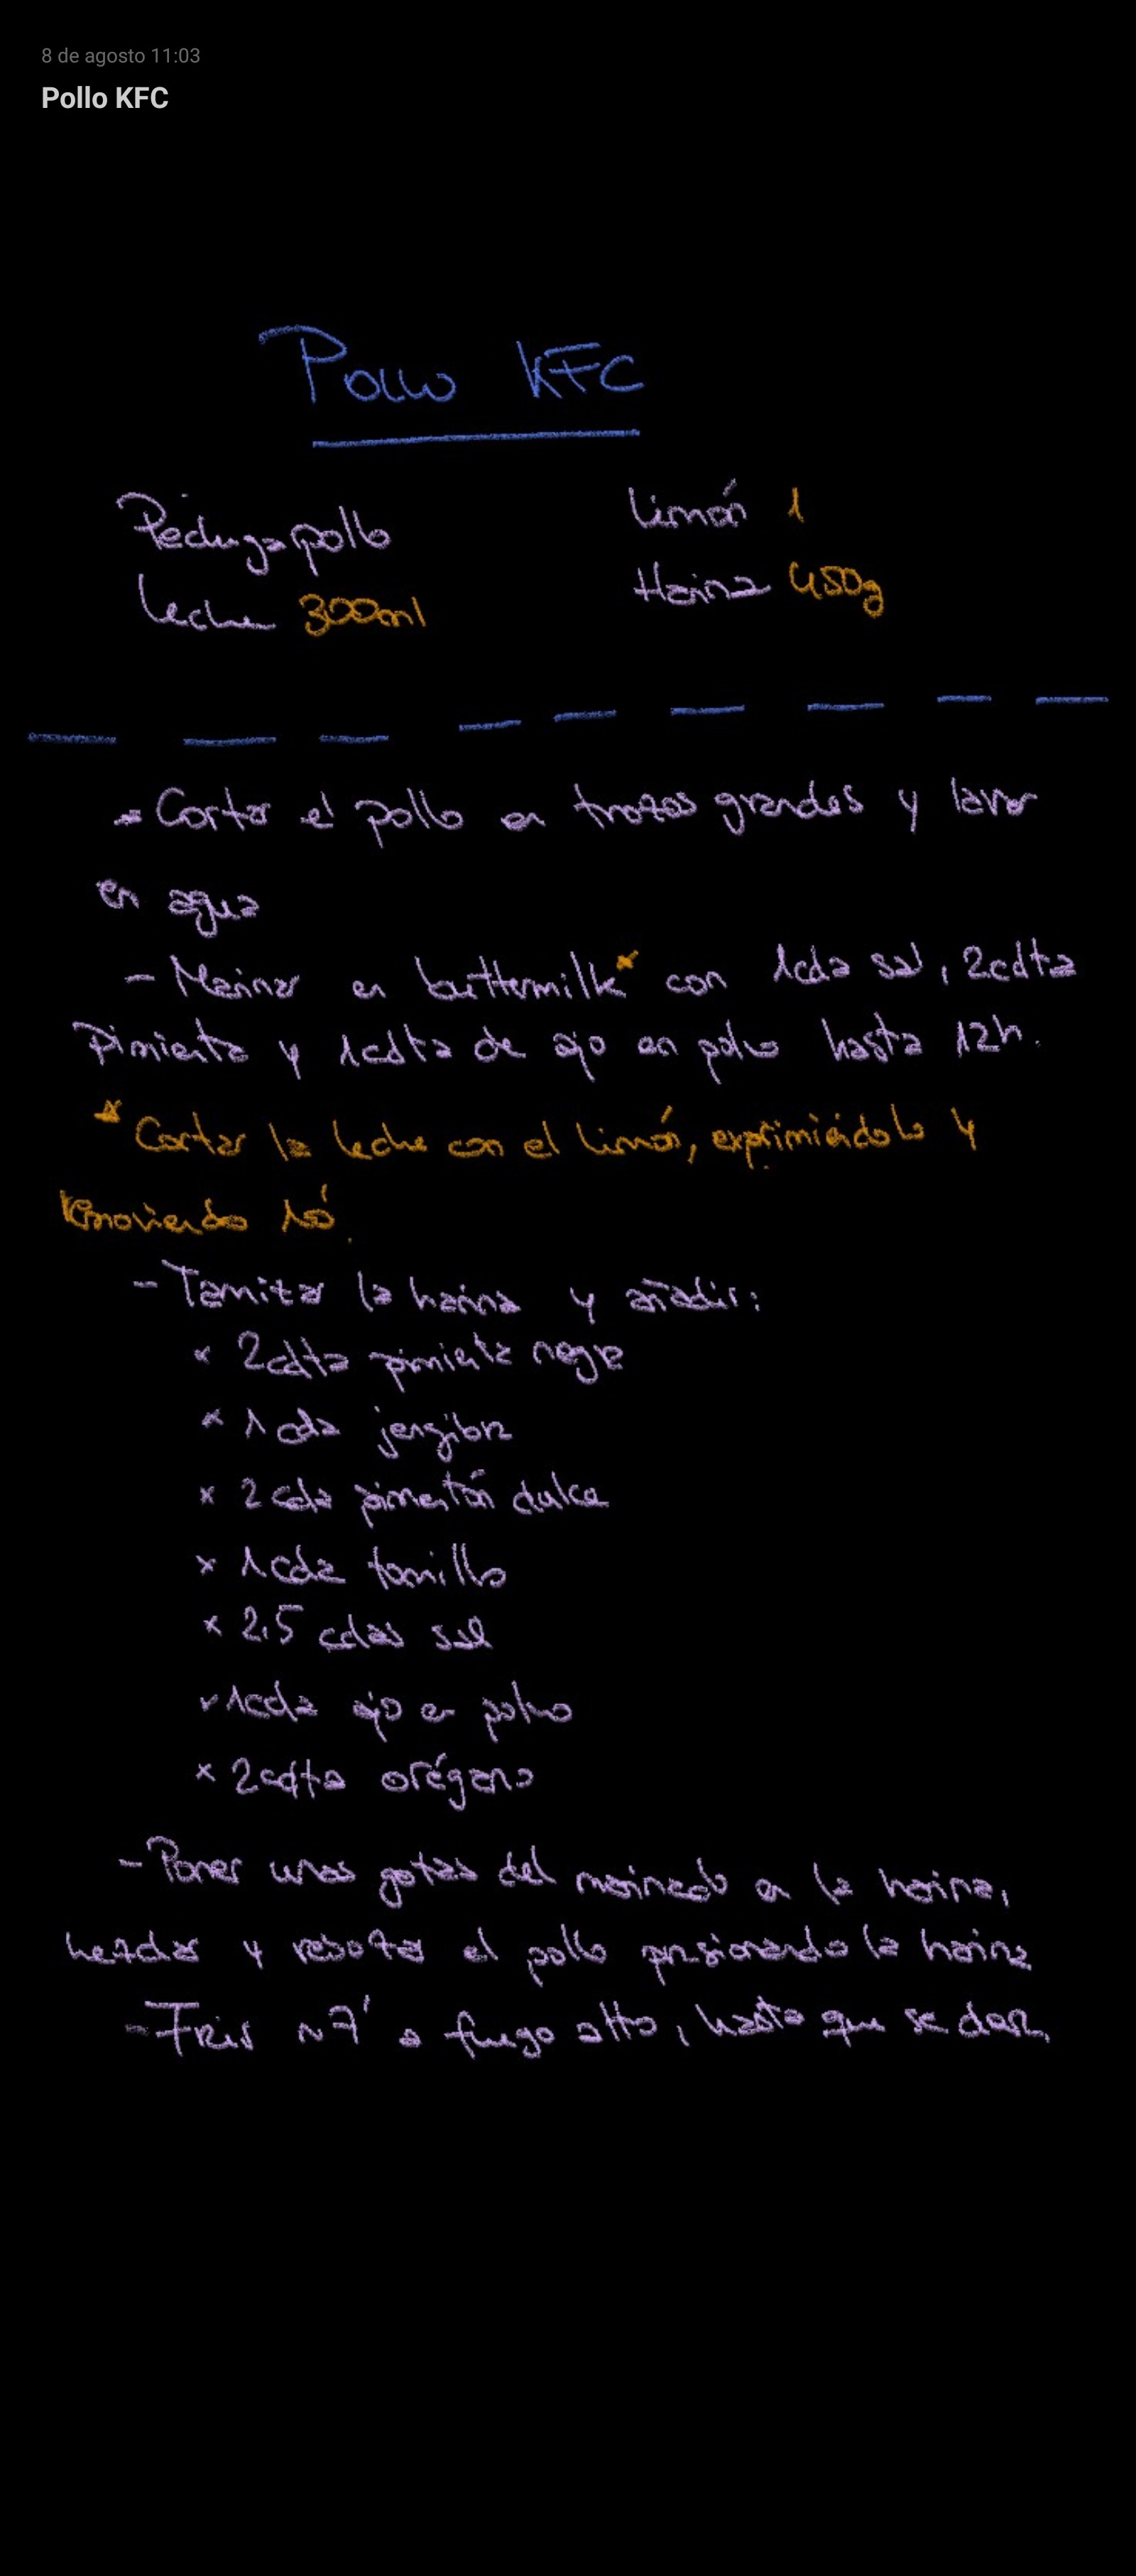 8 de agosto 11:03
Pollo KFC
Pollo KFC
Pechuga pollo
Limón 1
Leche 300ml
Harina 450g
- Cortar el pollo en trozos grandes y lavar
en agua
- Marinar en buttermilk* con 1cda sal, 2cdta
Pimienta y 1cdta de ajo en polvo hasta 12h.
* Cortar la leche con el limón, exprimiéndolo y
removiendo
- Tamizar la harina y añadir:
* 2cdta pimienta negra
* 1 cda jengibre
* 2 cda pimentón dulce
* 1cda tomillo
* 2,5 cdas sal
* 1cda ajo en polvo
* 2cdta orégano
- Poner unas gotas del marinado en la harina,
mezclar y rebozar el pollo presionando la harina
- Freír ~7' a fuego alto, hasta que se dore.